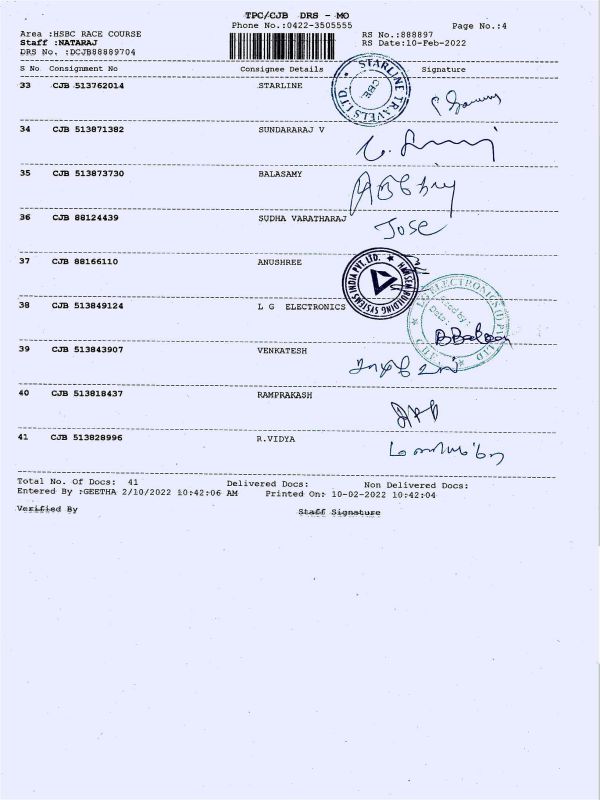 TPC/CJB DRS - MO
Phone No.:0422-3505555 Page No.:4
Area :HSBC RACE COURSE RS No.:888897
Staff :NATARAJ RS Date:10-Feb-2022
DRS No. :DCJB88889704
S No Consignment No Consignee Details Signature
33 CJB 513762014 STARLINE
STARLINE TRAVELS LTD. CBE.
34 CJB 513871382 SUNDARARAJ V
35 CJB 513873730 BALASAMY
36 CJB 88124439 SUDHA VARATHARAJ
Jose
37 CJB 88166110 ANUSHREE
BUILDING SYSTEMS INDIA PVT. LTD.
38 CJB 513849124 L G ELECTRONICS
ELECTRONICS
39 CJB 513843907 VENKATESH
40 CJB 513818437 RAMPRAKASH
41 CJB 513828996 R.VIDYA
Total No. Of Docs: 41 Delivered Docs: Non Delivered Docs:
Entered By :GEETHA 2/10/2022 10:42:06 AM Printed On: 10-02-2022 10:42:04
Verified By Staff Signature